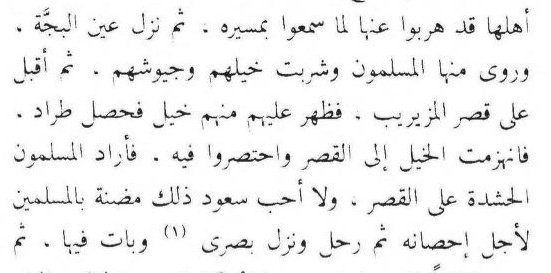 أهلها قد هربوا عنها لما سمعوا بمسيره . ثم نزل عين البجَّة .
وروى منها المسلمون وشربت خيلهم وجيوشهم . ثم أقبل
على قصر المزيريب . فظهر عليهم منهم خيل فحصل طراد .
فانهزمت الخيل إلى القصر واحتصروا فيه . فأراد المسلمون
الحشدة على القصر . ولا أحب سعود ذلك مضنة بالمسلمين
لأجل إحصانه ثم رحل ونزل بصرى (١) وبات فيها . ثم